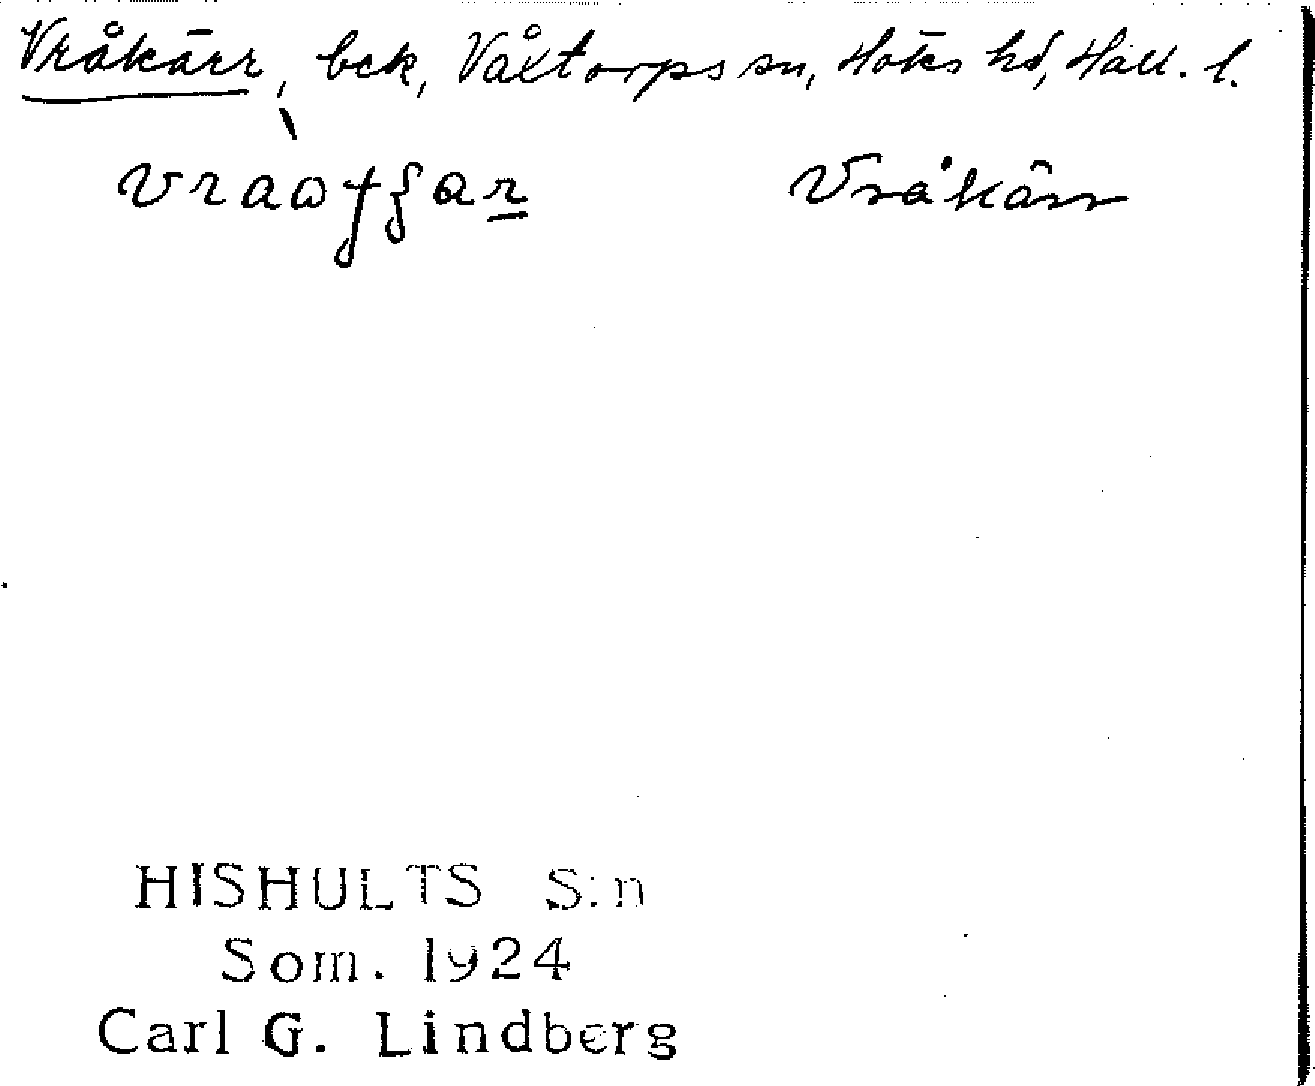 Vråkärr, bck, Våxtorps sn, Höks hd, Hall. l.
Vråkärr
HISHULTS S:n
Som. 1924
Carl G. Lindberg